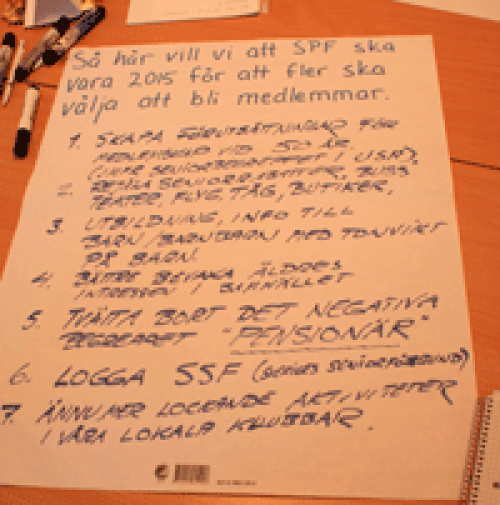 Så här vill vi att SPF ska
vara 2015 för att fler ska
välja att bli medlemmar.
1. SKAPA FÖRUTSÄTTNINGAR FÖR
MEDLEMSKAP VID 50 ÅR.
(INFR SENIORBEGREPPET I USA).
2. SENIORRABATTER, BUSS
TEATER, FLYG, TÅG, BUTIKER.
3. UTBILDNING, INFO TILL
BARN/BARNBARN MED TONVIKT
PÅ BARN.
4. BÄTTRE BEVAKA ÄLDRES
INTRESSEN I SAMHÄLLET
5. TVÄTTA BORT DET NEGATIVA
BEGREPPET "PENSIONÄR"
6. LOGGA SSF (SVERIGES SENIORFÖRBUND)
7. ÄNNU MER LOCKANDE AKTIVITETER
I VÅRA LOKALA KLUBBAR.